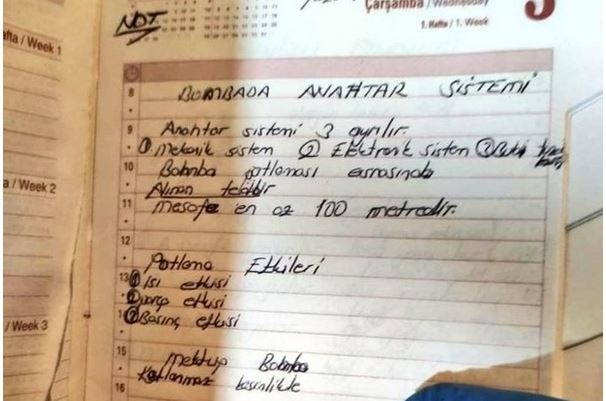 Çarşamba / Wednesday
1. Hafta / 1. Week
NOT
Hafta / Week 1
8 BOMBADA ANAHTAR SİSTEMİ
9 Anahtar sistemi 3 ayrılır.
① Mekanik sistem ② Elektronik sistem ③
10 Bomba patlaması esnasında
Alınan tedbir
11 Mesafe en az 100 metredir.
a / Week 2
12
Patlama Etkileri
13 ① Isı etkisi
② parça etkisi
14 ③ Basınç etkisi
/ Week 3
15
Mektup Bomba
16 Katlanmaz kesinlikle